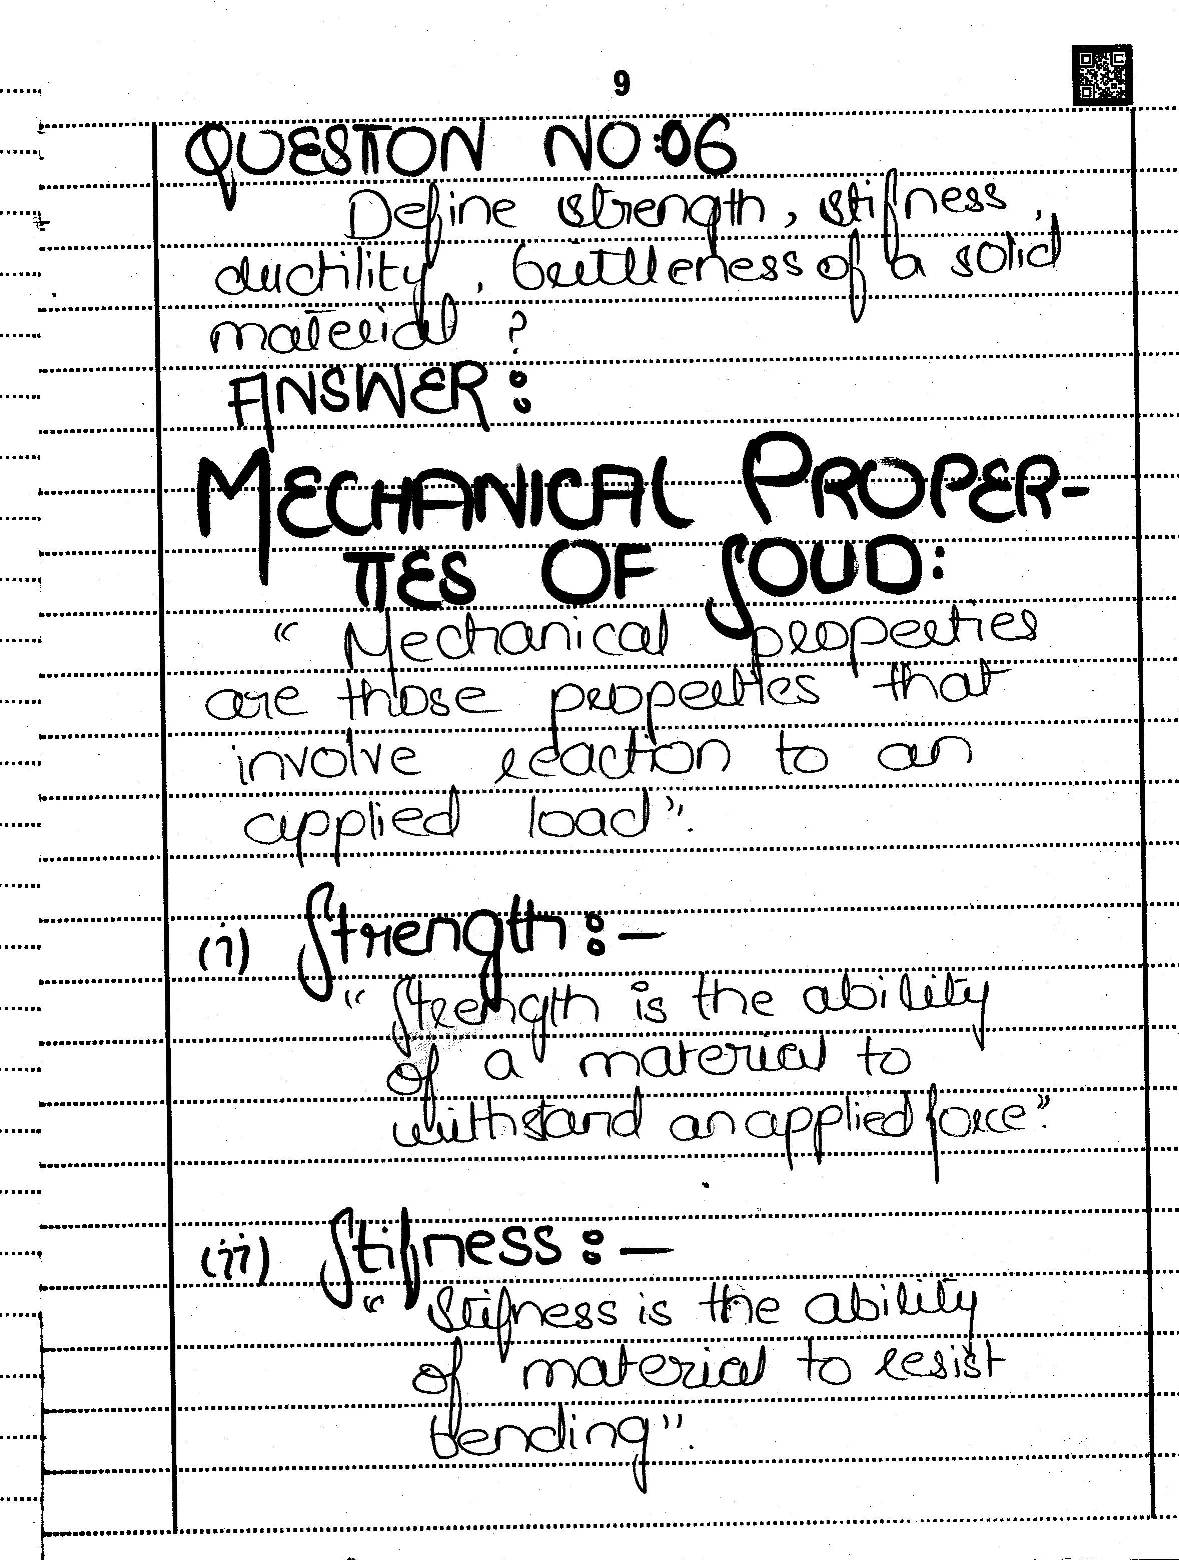 9
QUESTION NO:06
Define strength, stifness,
ductility, brittleness of a solid
material ?
ANSWER:
MECHANICAL PROPER-
TIES OF SOLID:
“ Mechanical properties
are those properties that
involve reaction to an
applied load”.
(i) Strength:—
“ Strength is the ability
of a material to
withstand an applied force”.
(ii) Stifness:—
“ Stifness is the ability
of material to resist
bending”.